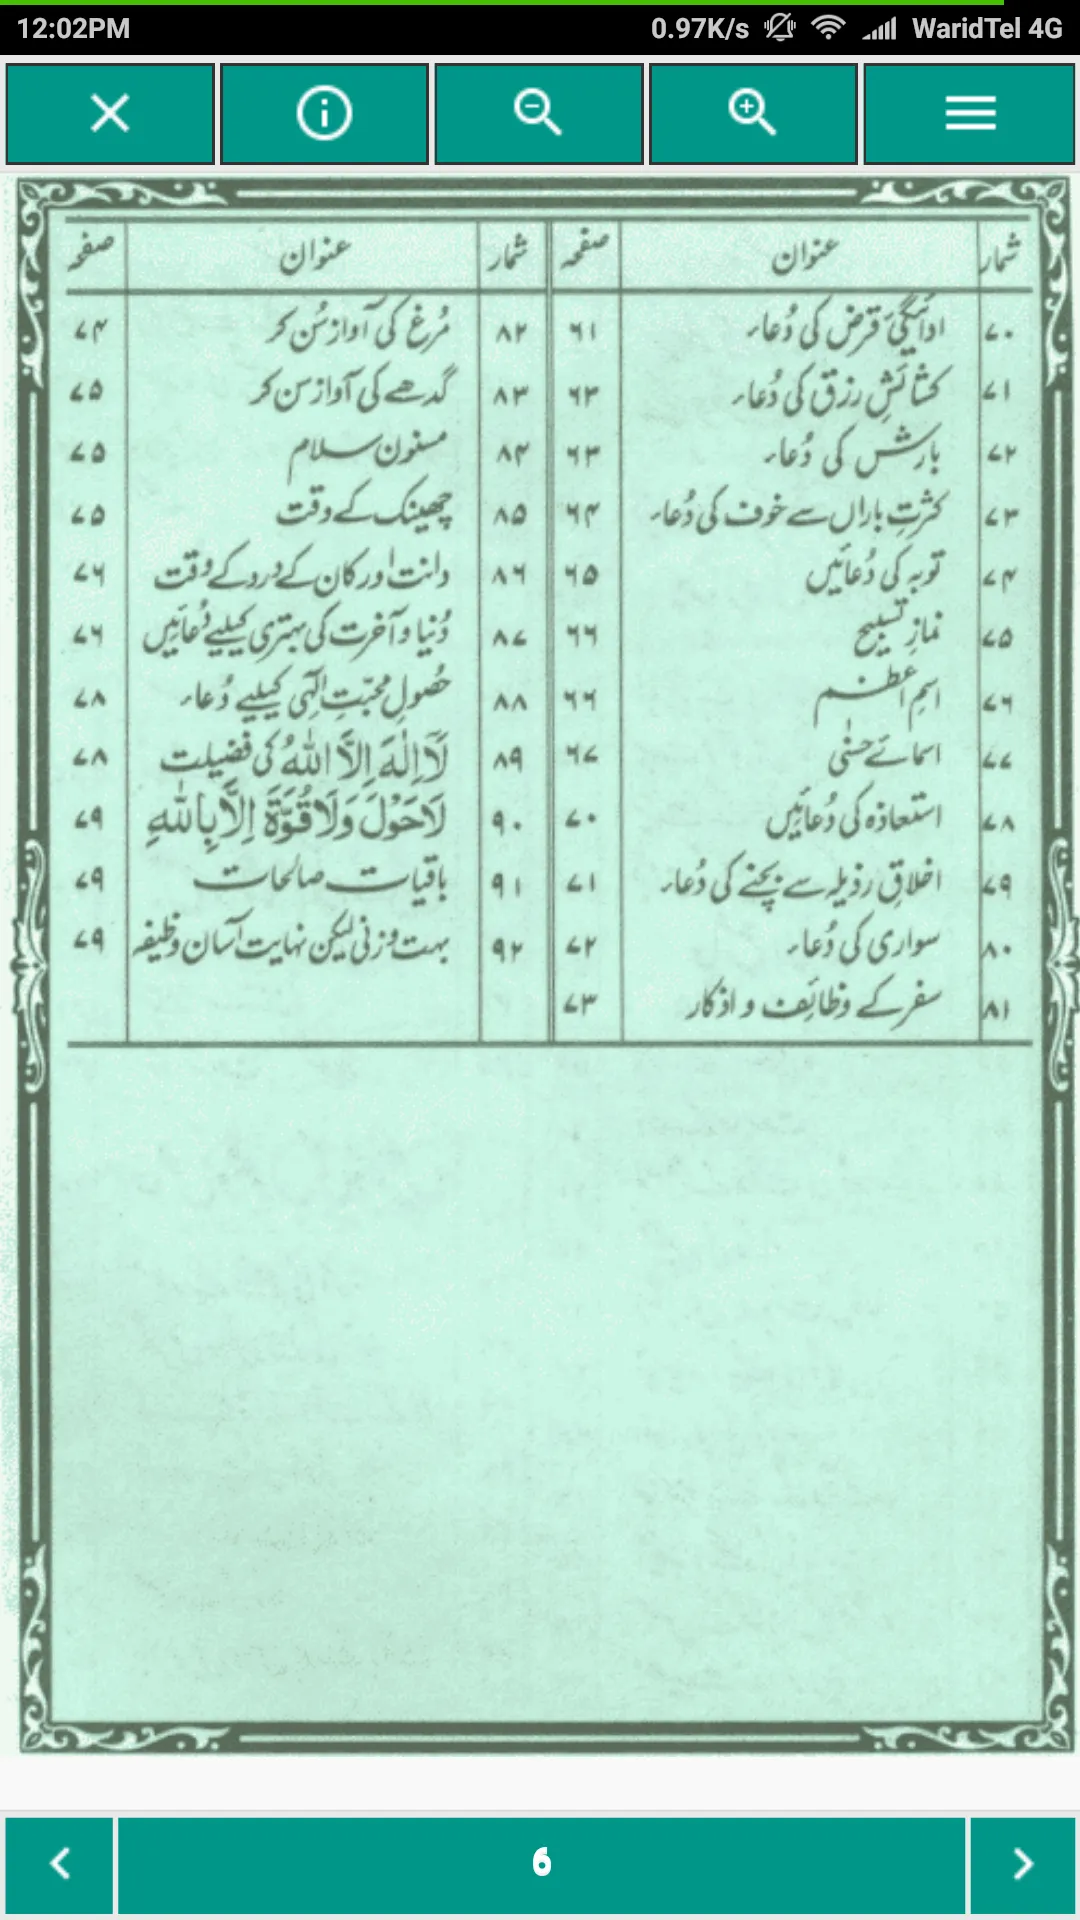 12:02PM 0.97K/s WaridTel 4G
شمار عنوان صفحہ شمار عنوان صفحہ
۷۰ ادائیگیٔ قرض کی دُعاء ۶۱ ۸۲ مُرغ کی آواز سُن کر ۷۴
۷۱ کشائشِ رزق کی دُعاء ۶۳ ۸۳ گدھے کی آواز سن کر ۷۵
۷۲ بارش کی دُعاء ۶۳ ۸۴ مسنون سلام ۷۵
۷۳ کثرتِ باراں سے خوف کی دُعاء ۶۴ ۸۵ چھینک کے وقت ۷۵
۷۴ توبہ کی دُعائیں ۶۵ ۸۶ دانت اور کان کے درد کے وقت ۷۶
۷۵ نمازِ تسبیح ۶۶ ۸۷ دُنیا و آخرت کی بہتری کیلیے دُعائیں ۷۶
۷۶ اسمِ اعظم ۶۶ ۸۸ حُصولِ محبّتِ الٰہی کیلیے دُعاء ۷۸
۷۷ اسمائے حسنٰی ۶۷ ۸۹ لَآ اِلٰهَ اِلَّا اللّٰهُ کی فضیلت ۷۸
۷۸ استعاذہ کی دُعائیں ۷۰ ۹۰ لَاحَوْلَ وَلَا قُوَّةَ اِلَّا بِاللّٰهِ ۷۹
۷۹ اخلاقِ رذیلہ سے بچنے کی دُعاء ۷۱ ۹۱ باقیات صالحات ۷۹
۸۰ سواری کی دُعاء ۷۲ ۹۲ بہت وزنی لیکن نہایت آسان وظیفہ ۷۹
۸۱ سفر کے وظائف و اذکار ۷۳
6